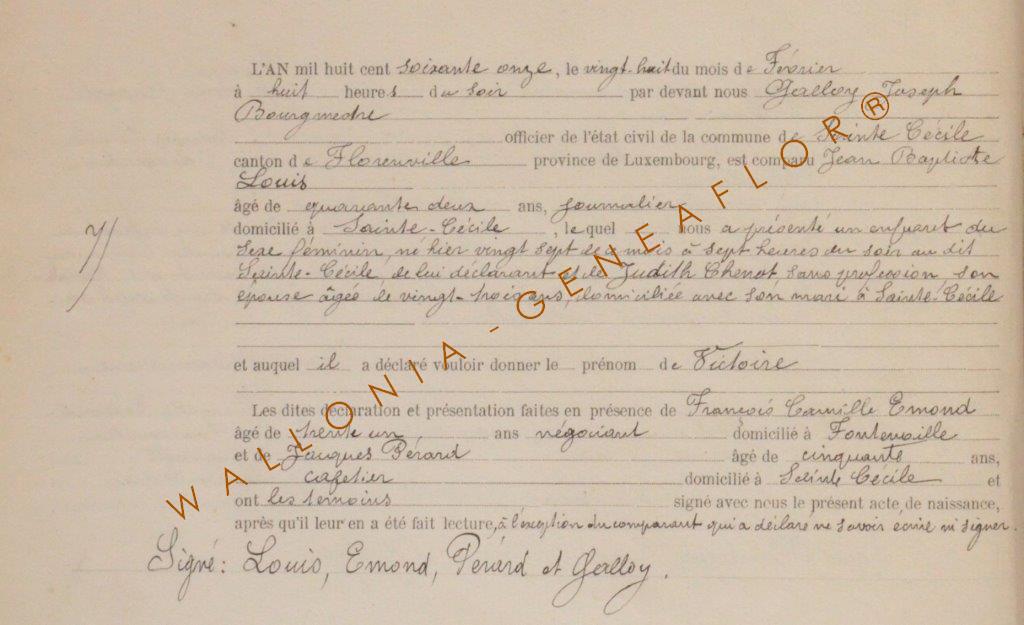 L'AN mil huit cent soixante onze, le vingt-huit du mois de Février
à huit heures du soir par devant nous Galloy Joseph
Bourgmestre
officier de l'état civil de la commune de Sainte Cécile
canton de Florenville province de Luxembourg, est comparu Jean Baptiste
Louis
âgé de quarante deux ans, journalier
domicilié à Sainte-Cécile, lequel nous a présenté un enfant du
7/
sexe féminin, né hier vingt sept de ce mois à sept heures du soir au dit
Sainte-Cécile, de lui déclarant et de Judith Chenot sans profession son
épouse âgée de vingt-trois ans, domiciliée avec son mari à Sainte-Cécile
et auquel il a déclaré vouloir donner le prénom de Victoire
Les dites déclaration et présentation faites en présence de François Camille Emond
âgé de trente un ans négociant domicilié à Fontenoille
et de Jacques Pérard âgé de cinquante ans,
cafetier domicilié à Sainte Cécile et
ont les témoins signé avec nous le présent acte de naissance,
après qu'il leur en a été fait lecture, à l'exception du comparant qui a déclaré ne savoir écrire ni signer.
Signé: Louis, Emond, Pérard et Galloy.
WALLONIA-GENEAFLOR®